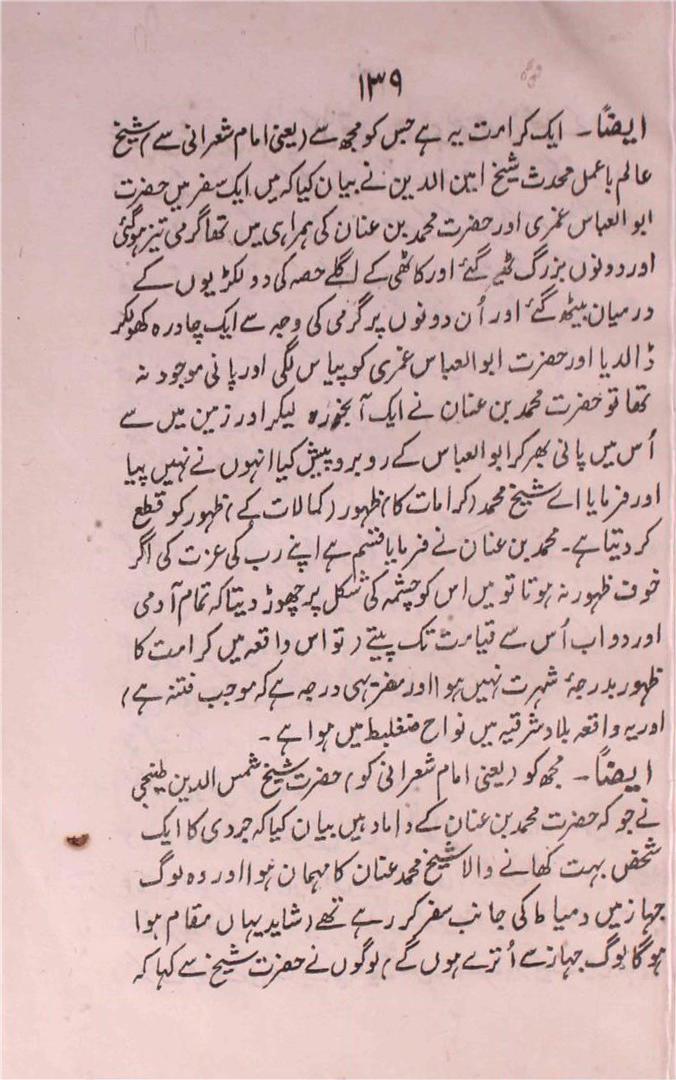 ۱۳۹
ایضاً ۔ ایک کرامت یہ ہے جس کو مجھ سے (یعنی امام شعرانی سے) شیخ
عالم باعمل محدث شیخ امین الدین نے بیان کیا کہ میں ایک سفر میں حضرت
ابو العباس غمری اور حضرت محمد بن عنان کی ہمراہی میں تھا گرمی تیز ہوگئی
اور دونوں بزرگ ٹھیر گئے اور کاٹھی کے اگلے حصہ کی دو لکڑیوں کے
درمیان بیٹھ گئے اور اُن دونوں پر گرمی کی وجہ سے ایک چادرہ کھولکر
ڈالدیا اور حضرت ابو العباس غمری کو پیاس لگی اور پانی موجود نہ
تھا تو حضرت محمد بن عنان نے ایک آبخورہ لیکر اور زمین میں سے
اُس میں پانی بھر کر ابو العباس کے روبرو پیش کیا انہوں نے نہیں پیا
اور فرمایا اے شیخ محمد (کرامات کا) ظہور (کمالات کے) ظہور کو قطع
کر دیتا ہے ۔ محمد بن عنان نے فرمایا قسم ہے اپنے رب کی عزت کی اگر
خوف ظہور نہ ہوتا تو میں اس کو چشمہ کی شکل پر چھوڑ دیتا کہ تمام آدمی
اور دواب اُس سے قیامت تک پیتے (تو اس واقعہ میں کرامت کا
ظہور بدرجۂ شہرت نہیں ہوا اور مضر یہی درجہ ہے کہ موجب فتنہ ہے)
اور یہ واقعہ بلاد شرقیہ میں نواح میں ہوا ہے ۔
ایضاً ۔ مجھ کو (یعنی امام شعرانی کو) حضرت شیخ شمس الدین طنیخی
نے جو کہ حضرت محمد بن عنان کے داماد ہیں بیان کیا کہ کا ایک
شخص بہت کھانے والا شیخ محمد عنان کا مہمان ہوا اور وہ لوگ
جہاز میں دمیاط کی جانب سفر کر رہے تھے (شاید یہاں مقام ہوا
ہوگا لوگ جہاز سے اُترے ہوں گے) لوگوں نے حضرت شیخ سے کہا کہ